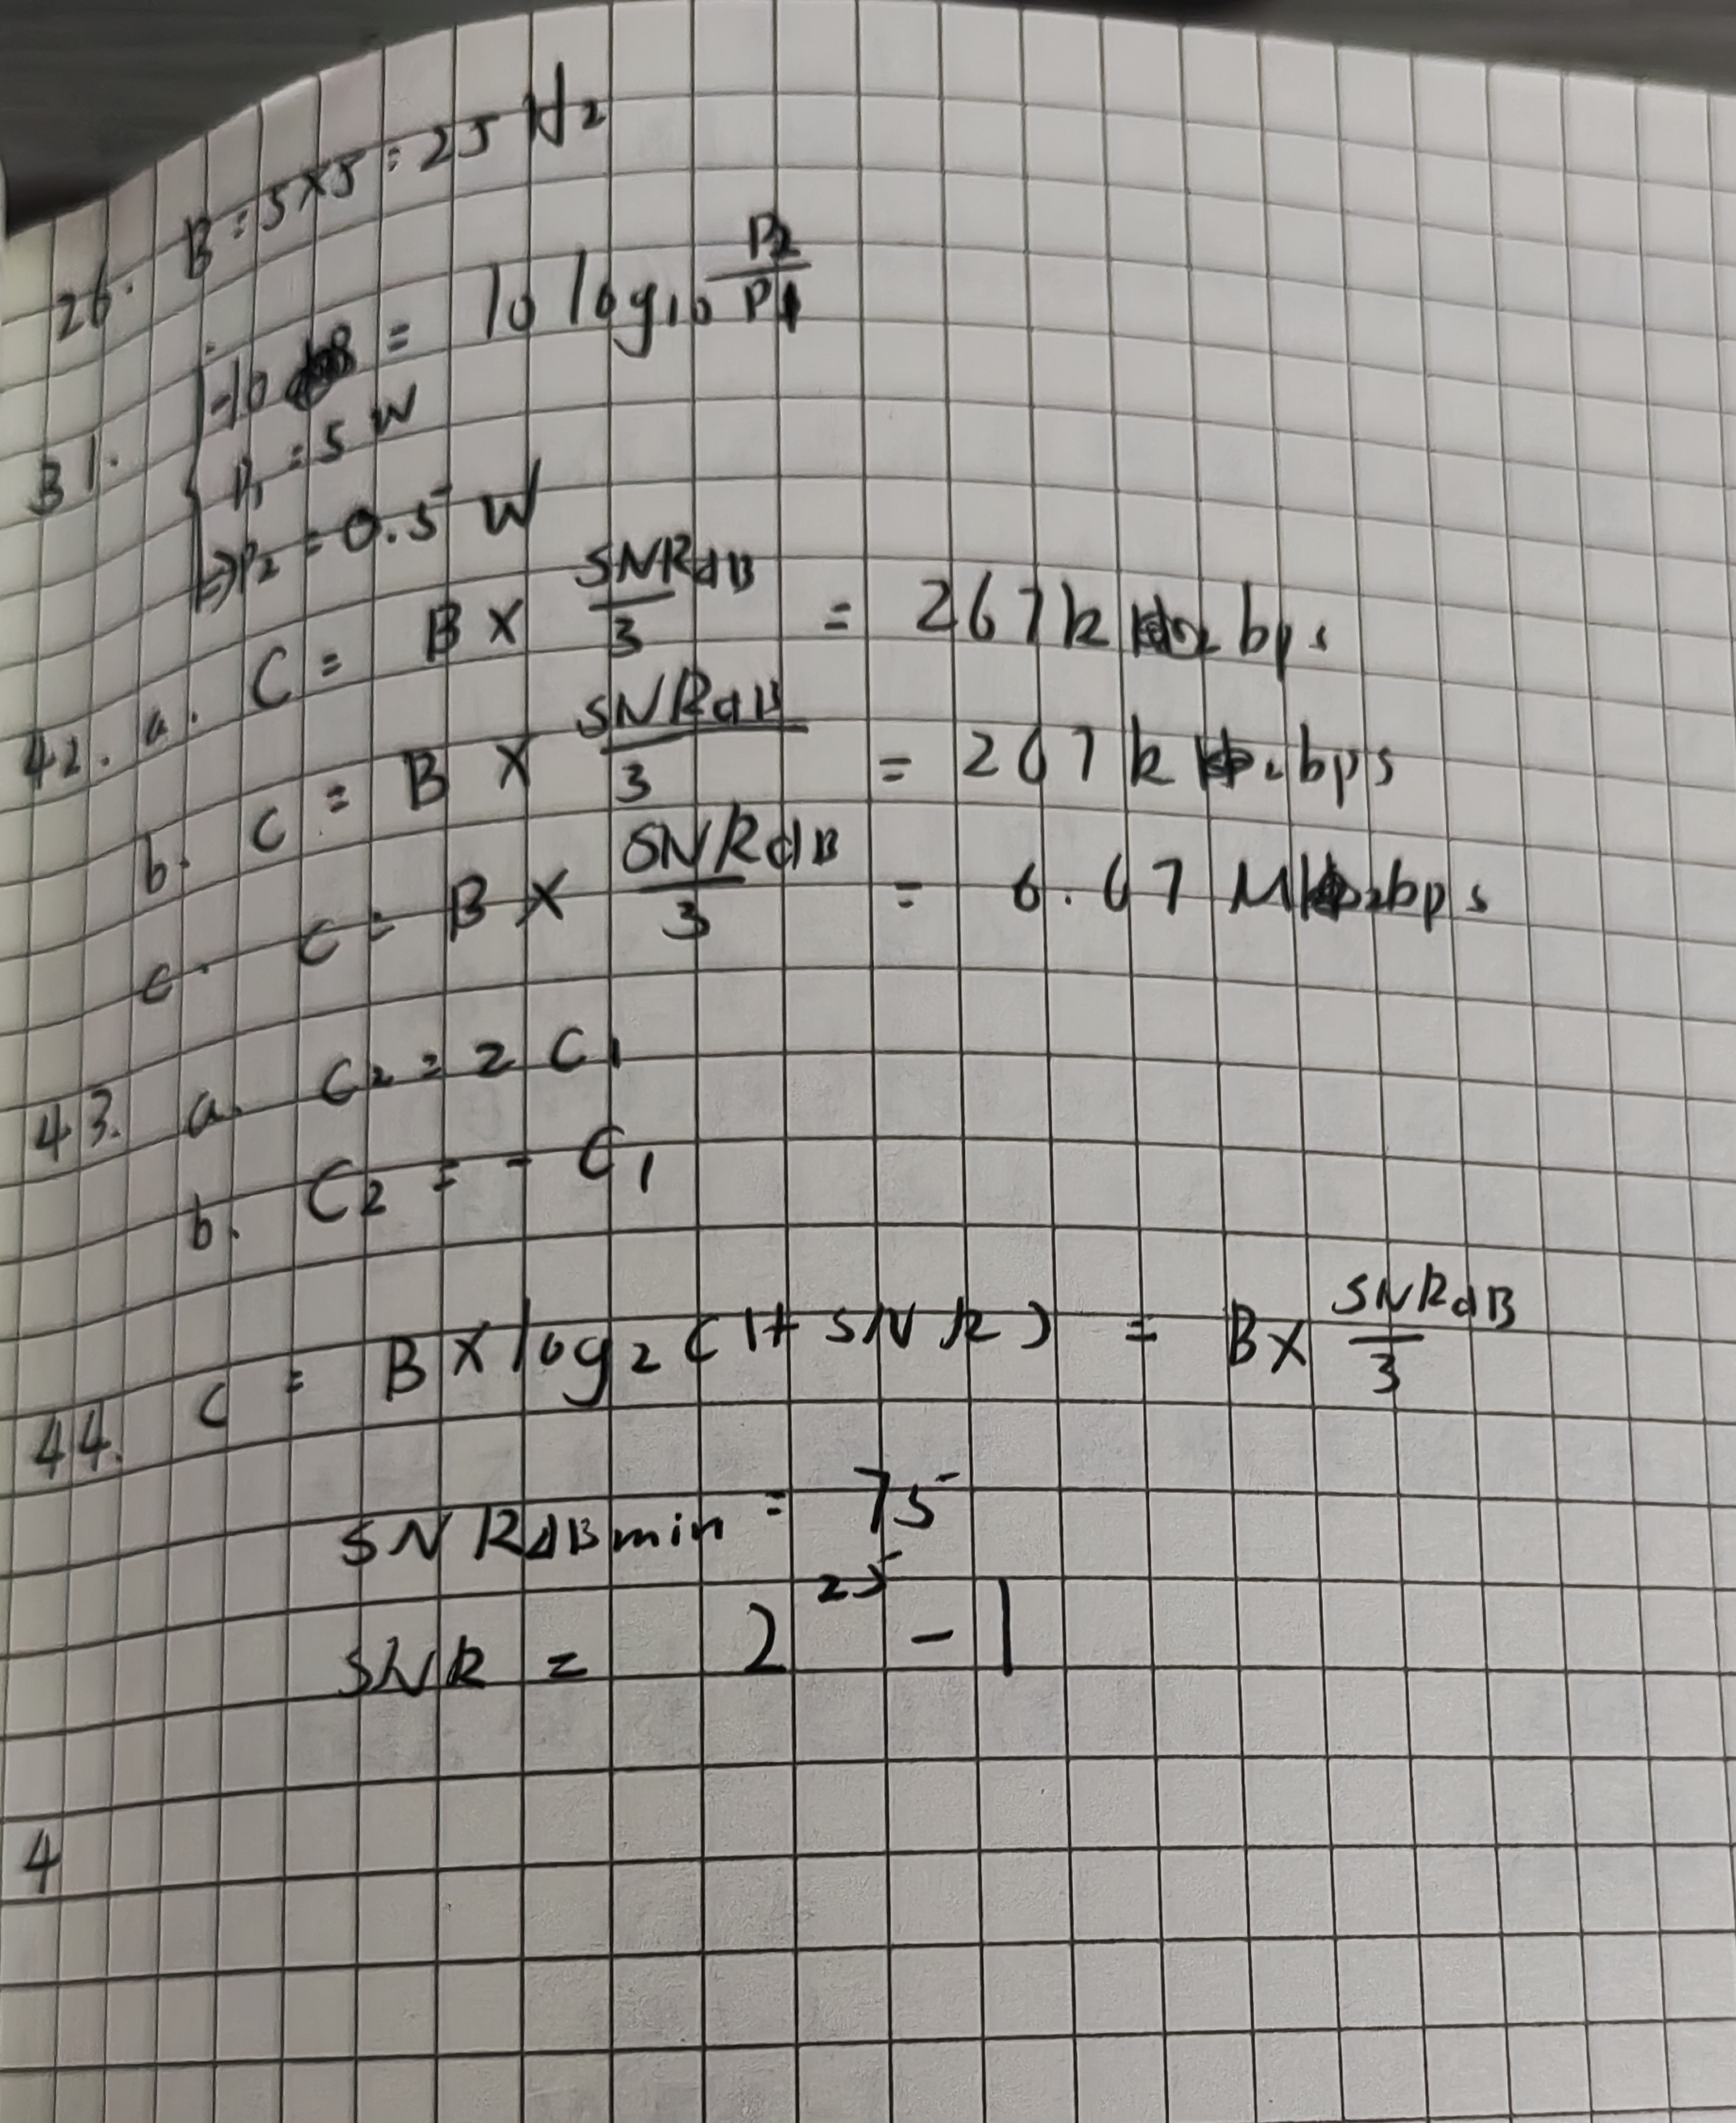 26. B = 5×5 = 25 Hz
31. -10 dB = 10 log10 P2/P1
P1 = 5 W
=> P2 = 0.5 W
42. a. C = B × SNRdB/3 = 267 k bps
b. C = B × SNRdB/3 = 267 k bps
c. C = B × SNRdB/3 = 6.67 M bps
43. a. C2 = 2 C1
b. C2 = - C1
44. C = B × log2 (1+SNR) = B × SNRdB/3
SNRdBmin = 75
SNR = 2^25 - 1
4